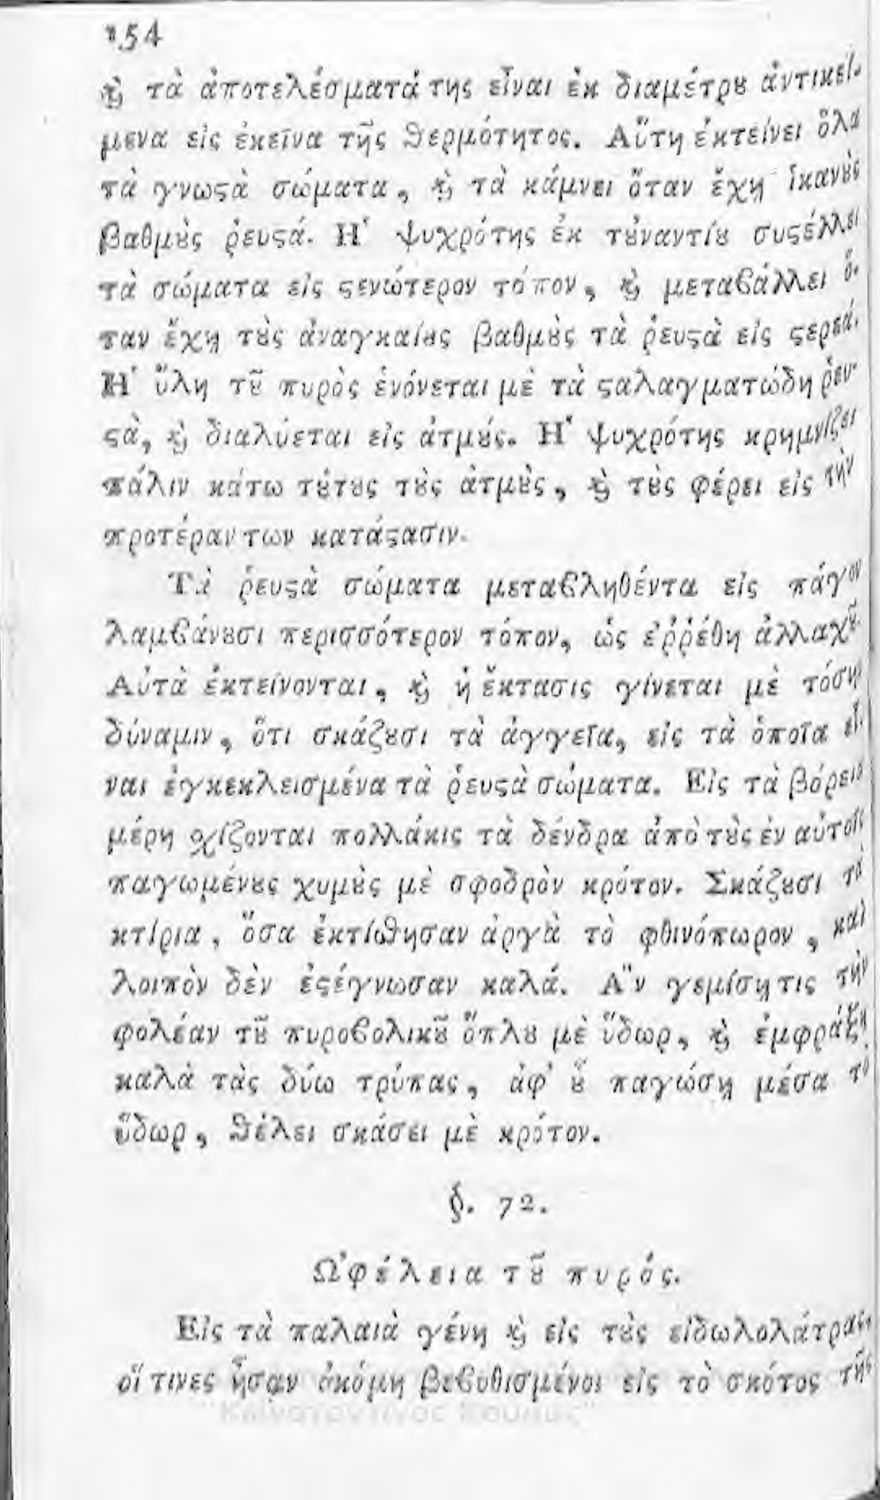 154
ϗ̀ τὰ ἀποτελέσματά της εἶναι ἐκ διαμέτρȣ ἀντικεί-
μενα εἰς ἐκεῖνα τῆς ϑερμότητος. Αὕτη ἐκτείνει ὅλα
τὰ γνωϛὰ σώματα, ϗ̀ τὰ κάμνει ὅταν ἔχῃ ἱκανȣ̀ς
βαθμȣ̀ς ῥευϛά. Η῾ ψυχρότης ἐκ τȣ̓ναντίȣ συϛέλλει
τὰ σώματα εἰς ϛενώτερον τόπον, ϗ̀ μεταϐάλλει ὅ-
ταν ἔχῃ τȣ̀ς ἀναγκαίȣς βαθμȣ̀ς τὰ ῥευϛὰ εἰς ϛερεά.
Η῾ ὕλη τȣ͂ πυρὸς ἑνόνεται μὲ τὰ ϛαλαγματώδη ῥευ-
ϛὰ, ϗ̀ διαλύεται εἰς ἀτμȣ́ς. Η῾ ψυχρότης κρημνίζει
πάλιν κάτω τȣ́τȣς τȣ̀ς ἀτμȣ̀ς, ϗ̀ τȣ̀ς φέρει εἰς τὴν
προτέραν των κατάϛασιν.
Τὰ ῥευϛὰ σώματα μεταϐληθέντα εἰς πάγον
λαμϐάνȣσι περισσότερον τόπον, ὡς ἐῤῥέθη ἀλλαχȣ͂.
Αὐτὰ ἐκτείνονται, ϗ̀ ἡ ἔκτασις γίνεται μὲ τόσην
δύναμιν, ὅτι σκάζȣσι τὰ ἀγγεῖα, εἰς τὰ ὁποῖα εἶ-
ναι ἐγκεκλεισμένα τὰ ῥευϛὰ σώματα. Εἰς τὰ βόρεια
μέρη σχίζονται πολλάκις τὰ δένδρα ἀπὸ τȣ̀ς ἐν αὐτοῖς
παγωμένȣς χυμȣ̀ς μὲ σφοδρὸν κρότον. Σκάζȣσι τὰ
κτίρια, ὅσα ἐκτίσθησαν ἀργὰ τὸ φθινόπωρον, καὶ
λοιπὸν δὲν ἐϛέγνωσαν καλά. Α῍ν γεμίσῃ τις τὴν
φολέαν τȣ͂ πυροϐολικȣ͂ ὅπλȣ μὲ ὕδωρ, ϗ̀ ἐμφράξῃ
καλὰ τὰς δύω τρύπας, ἀφ' ȣ̔͂ παγώσῃ μέσα τὸ
ὕδωρ, ϑέλει σκάσει μὲ κρότον.
§. 72.
Ω᾿φέλεια τȣ͂ πυρός.
Εἰς τὰ παλαιὰ γένη ϗ̀ εἰς τȣ̀ς εἰδωλολάτρας,
οἵ τινες ἦσαν ἀκόμη βεϐυθισμένοι εἰς τὸ σκότος τῆς